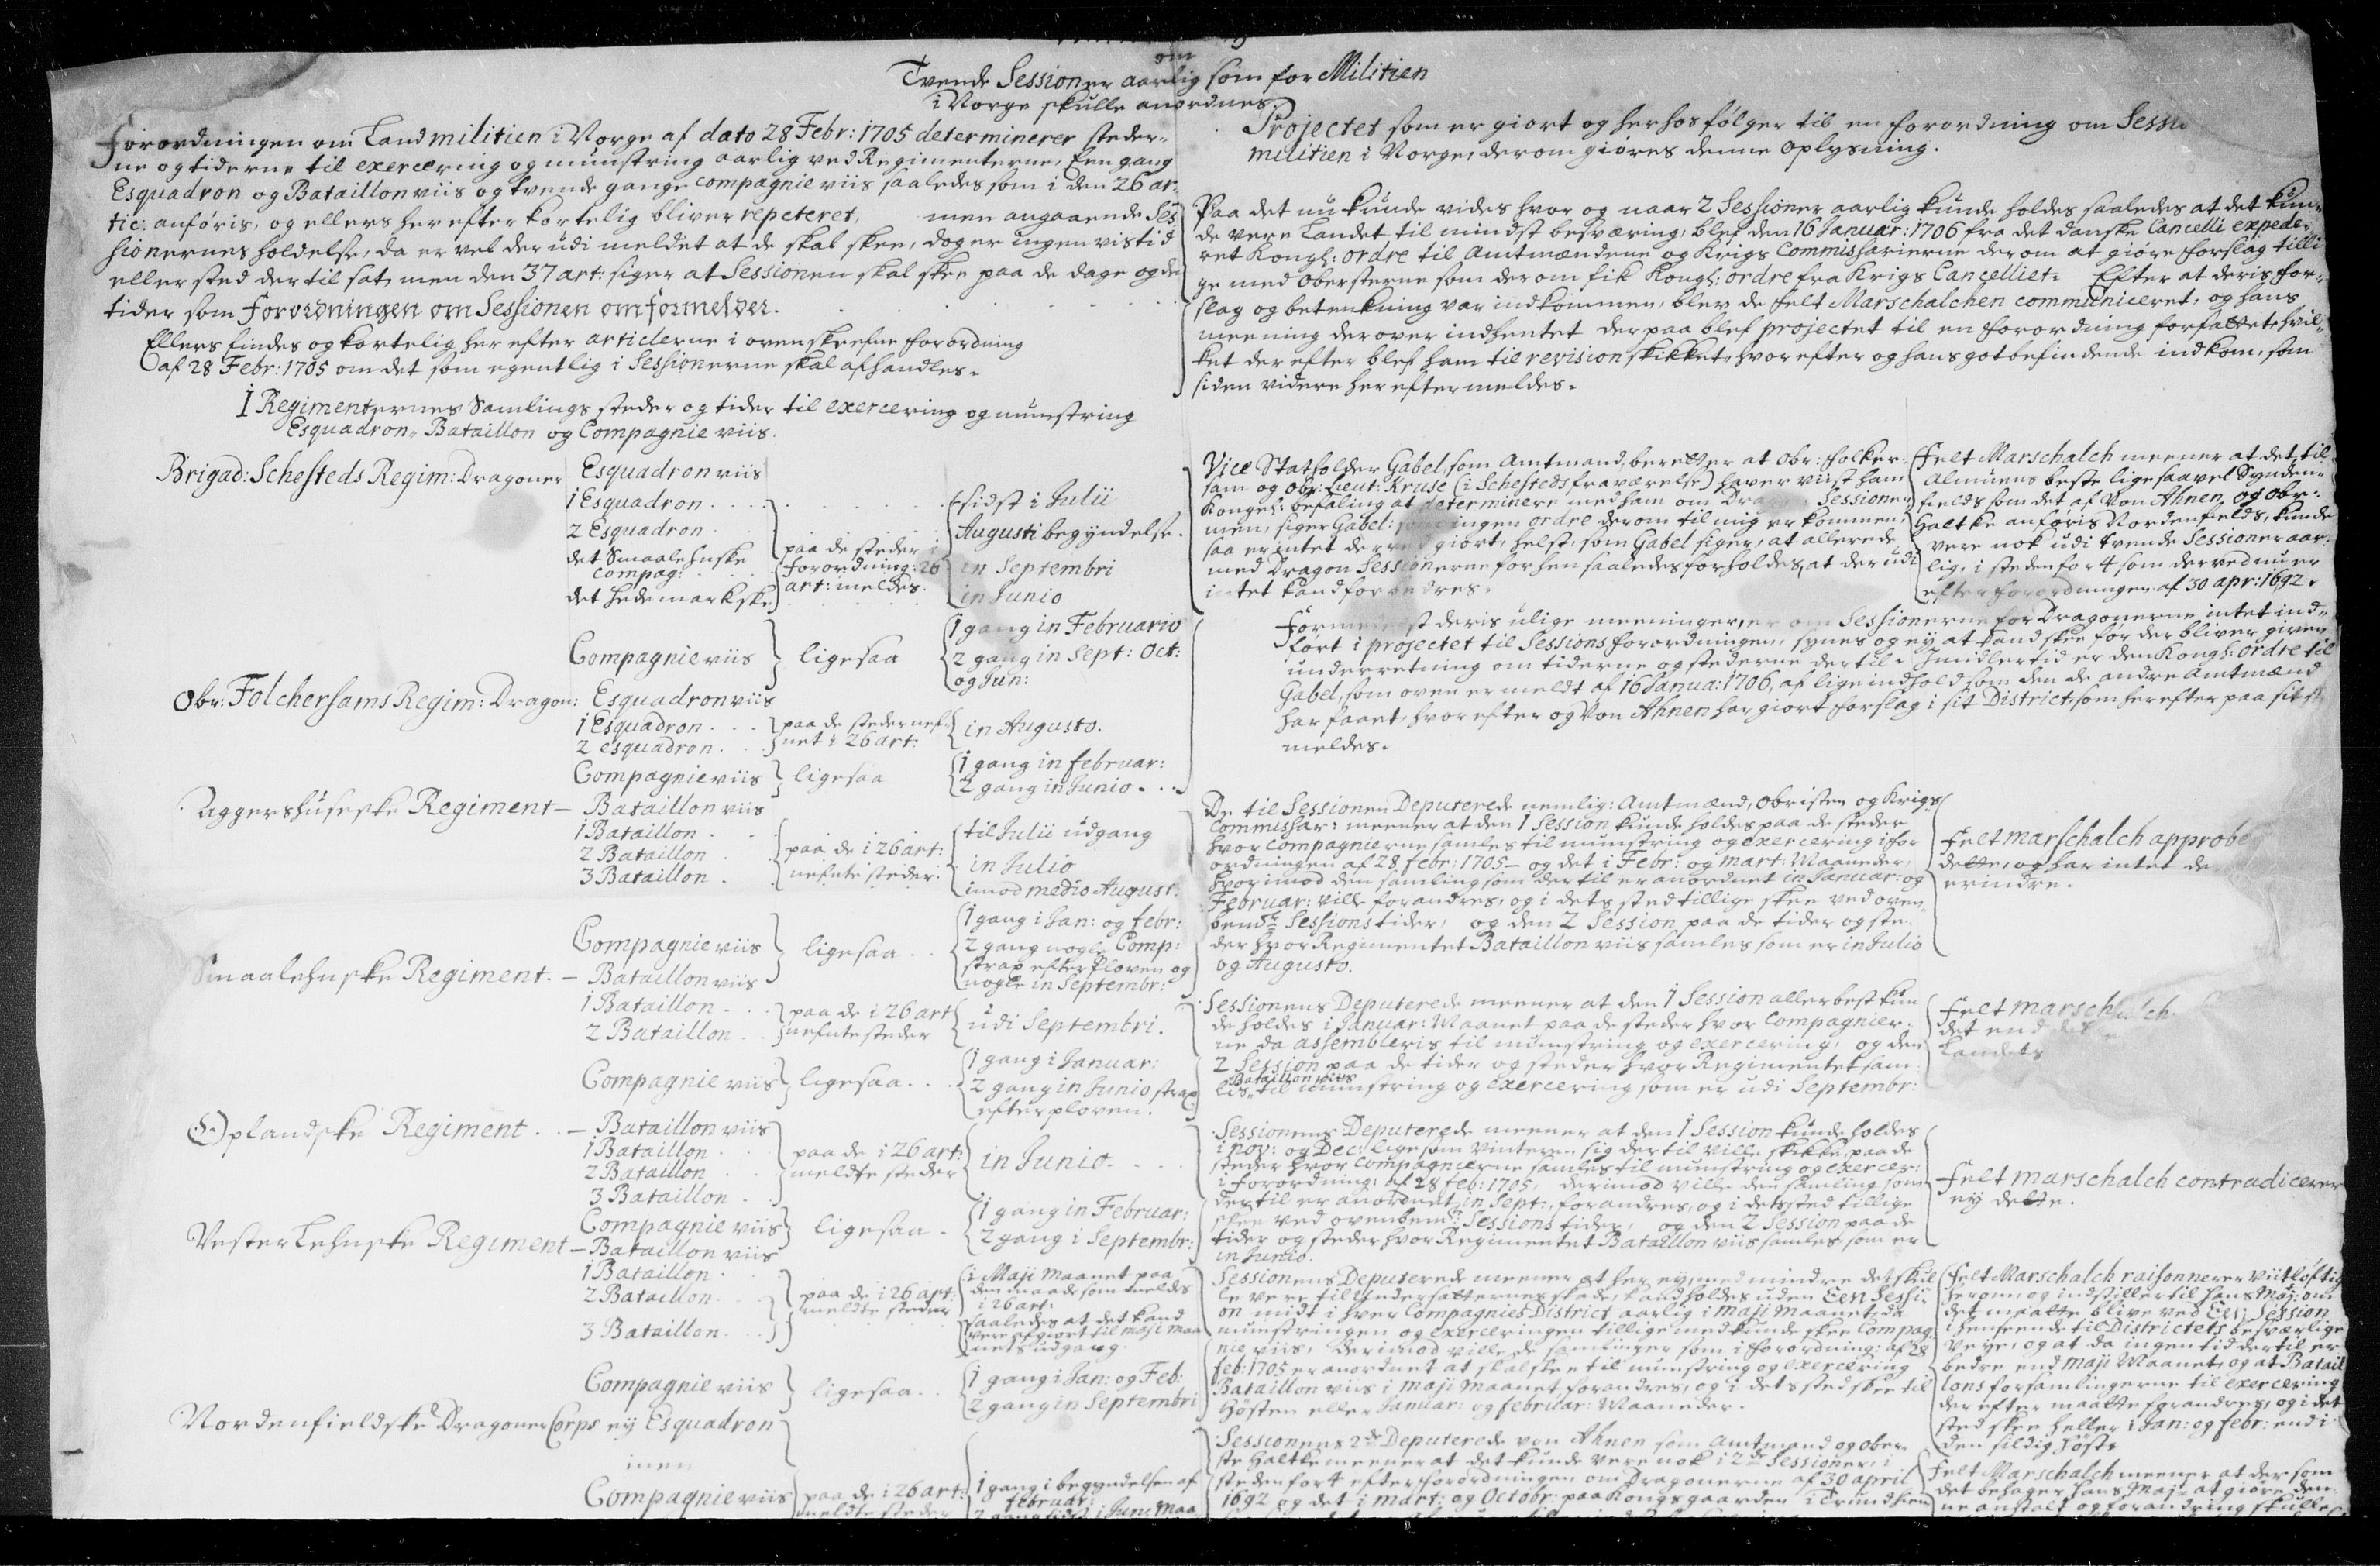 om
Tvende Sessioner aarlig som for Militien
i Norge skulle anordnes.
Forordningen om Landmilitien i Norge af dato 28 Febr: 1705 determinerer steder-
ne og tiderne til exercering og munstring aarlig ved Regimenterne, Een gang
Esquadron og Bataillon viis og tvende gange compagnie viis saaledes som i den 26 ar-
tic: anføris, og ellers her efter kortelig bliver repeteret, men angaaende Ses
sionernes holdelse, da er vel der udi meldet at de skal skee, dog er ingen vis tid
eller sted der til sat, men den 37 art: siger at Sessionen skal skee paa de dage og de
tider som Forordningen om Sessionen omformelder.
Ellers findes og kortelig her efter articlerne i ovenskrefne forordning
af 28 Febr: 1705 om det som egentlig i Sessionerne skal afhandles.
I Regimenternes Samlings steder og tider til exercering og munstring
Esquadron, Bataillon og Compagnie viis.
Brigad: Schesteds Regim: Dragoner Esquadron viis
1 Esquadron
2 Esquadron
det Smaalehnske
Compag:
det hedemarkske
paa de steder i
forordning: 26
art: meldes.
sidst i Julii
Augusti begyndelse.
in Septembri
in Junio
Compagnie viis ligesaa
1 gang in Februario
2 gang in Sept: Oct:
og Jun:
Obr: Folchersams Regim: Dragon: Esquadron viis
1 Esquadron
2 esquadron
paa de steder nef-
net i 26 art:
in Augusto.
Compagnie viis ligesaa
1 gang in februar:
2 gang in Junio
Aggershuseske Regiment — Bataillon viis
1 Bataillon
2 Bataillon
3 Bataillon
paa de i 26 art:
nefnte steder.
til Julii udgang
in Julio
imod medio August:
Compagnie viis ligesaa
1 gang i Jan: og febr:
2 gang nogle Comp:
strax efter Ploven og
nogle in Septembr:
Smaalehnske Regiment — Bataillon viis
1 Bataillon
2 Bataillon
paa de i 26 art
nefnte steder
udi Septembri.
Compagnie viis ligesaa
1 gang i Januar:
2 gang in Junio strax
efter ploven.
Oplandske Regiment — Bataillon viis
1 Bataillon
2 Bataillon
3 Bataillon
paa de i 26 art:
meldte steder
in Junio.
Compagnie viis ligesaa
1 gang in Februar:
2 gang i Septembr:
Vesterlehnske Regiment — Bataillon viis
1 Bataillon
2 Bataillon
3 Bataillon
paa de i 26 art:
meldte steder
i Maji Maanet paa
den maade som meldes
i 26 art:
saaledes at det kand
vere afgiort til Maji Maa
nets udgang.
Compagnie viis ligesaa
1 gang i Jan: og Feb:
2 gang in Septembri
Nordenfieldske Dragoner Corps ey Esquadron
men
Compagnie viis
paa de i 26 art:
meldte steder
1 gang i begyndelsen af
februar:
2 gang sidst i Jun: Maa
Projectet som er giort og herhos følger til en forordning om Sessi
militien i Norge, derom giøres denne Oplysning.
Paa det nu kunde vides hvor og naar 2 Sessioner aarlig kunde holdes saaledes at det kun-
de vere Landet til mindst besværing, blef den 16 Januar: 1706 fra det danske Cancelli expede-
ret Kongl: ordre til Amtmændene og Krigs Commissarierne derom at giøre forslag tilli
ge med Obersterne som derom fik Kongl: ordre fra Krigs Cancelliet. Efter at deris for-
slag og betenkning var indkommen, blev de felt Marschalchen communiceret, og hans
meening derover indhentet derpaa blef projectet til en forordning forfattet, hvil-
ket der efter blef ham til revision skikket, hvorefter og hans gotbefindende indkom, som
siden videre her efter meldes.
Vice Statholder Gabel, som Amtmand, beretter at Obr: Folker-
sam og Obr: Lieut: Kruse (i Schesteds fraværelse) haver viist ham
Kongel: befaling at determinere med ham om Dragon Sessioner,
men, siger Gabel: som ingen ordre derom til mig er kommen,
saa er intet derved giort, helst, som Gabel siger, at allerede
med Dragon Sessionerne forhen saaledes forholdes, at der udi
intet kand forandres.
Felt Marschalch meener at det, til
Almuens beste ligesaavel Synden-
fields som det af Von Ahnen og Obr:
Haltke anføris Nordenfields, kunde
vere nok udi tvende Sessioner aar-
lig, i steden for 4 som derved nu er
efter forordningen af 30 apr: 1692.
Formedelst deris ulige meeninger, er om Sessionerne for Dragonerne intet ind-
ført i projectet til Sessions forordningen, synes og ey at kand skee før der bliver given
underretning om tiderne og stederne der til. Imidlertid er den Kongl: ordre til
Gabel, som oven er meldt af 16 Janua: 1706, af lige indhold som den de andre Amtmænd
har faaet, hvor efter og Von Ahnen har giort forslag i sit District, som her efter paa sit st
meldes.
De til Sessionen Deputerede nemlig: Amtmænd, Obristen og Krigs
Commissar: meener at den 1 Session kunde holdes paa de steder
hvor Compagnierne samles til munstring og exercering i for
ordningen af 28 febr: 1705 — og det i Febr: og Mart: Maaneder,
hvorimod den samling som der til er anordnet in Januar: og
Februar: ville forandres, og i dets sted tillige skee ved oven
bemte Sessions tider, og den 2 Session paa de tider og ste-
der hvor Regimentet Bataillon viis samles som er in Julio
og Augusto.
felt marschalch approbe
dette, og har intet de
erindre.
Sessionens Deputerede meener at den 1 Session allerbest kun
de holdes i Januar: Maanet paa de steder hvor Compagnier-
ne da assembleris til munstring og exercering, og den
2 Session paa de tider og steder hvor Regimentet sam
Bataillon viis
les til munstring og exercering som er udi Septembr:
felt marschalch
det end
Landets
Sessionens Deputerede meener at den 1 Session kunde holdes
i Nov: og Dec: lige som Vinteren sig der til ville skikke, paa de
steder hvor Compagnierne samles til munstring og exercer:
i forordning: af 28 feb: 1705, derimod ville den samling som
der til er anordnet in Sept:, forandres, og i dets sted tillige
skee ved ovenbemte Sessions tider, og den 2 Session paa de
tider og steder hvor Regimentet Bataillon viis samles, som er
in Junio.
felt marschalch contradicerer
ey dette.
Sessionens Deputerede meener at her ey, med mindre det skul
le vere til Undersatternes skade, kand holdes uden Een Sessi-
on midt i hver Compagnies District aarlig i Maji Maanet, da
munstringen og exerceringen tillige med kunde skee Compag-
nie viis, derimod ville de samlinger som i forordning: af 28
feb: 1705 er anordnet at skal skee til munstring og exercering
Bataillon viis i Maji Maanet forandres, og i dets sted skee til
Høsten eller Januar: og februar: Maaneder.
felt Marschalch raisonnerer vitløftig
herom, og indstiller til hans Maj: om
det maatte blive ved Een Session
i henseende til Districtets besværlige
Veye, og at da ingen tid der til er
bedre end Maji Maanet, og at Batail
lons forsamlingerne til exercering
der efter maatte forandres, og i det
sted skee heller i Jan: og febr: end i
den sildig Høst.
Sessionens 2de Deputerede von Ahnen som Amtmand og ober-
ste Haltke meener at det kunde vere nok i 2de Sessioner, i
steden for 4 efter forordningen om Dragonerne af 30 april
1692 og det i Mart: og Octobr: paa Kongsgaarden i Trundhiem
felt Marschalch meener at der som
det behager hans Maj: at giøre den
ne anstalt og forandring skulle